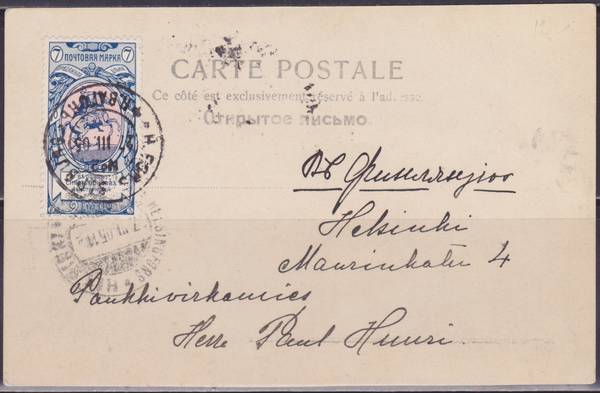 7 ПОЧТОВАЯ МАРКА 7
CARTE POSTALE
Ce côté est exclusivement réservé à l'adresse
Открытое письмо
III.05
Въ Финляндію
Helsinki
HELSINGFORS
Maurinkatu 4
Pankkivirkamies
Herr Paul